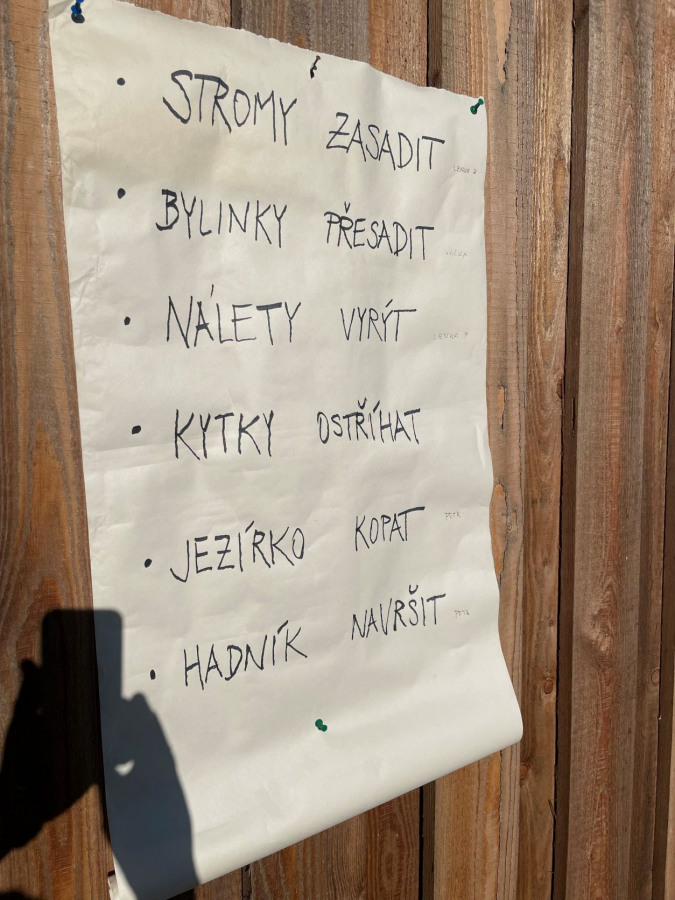 • STROMY ZASADIT
• BYLINKY PŘESADIT
• NÁLETY VYRÝT
• KYTKY OSTŘÍHAT
• JEZÍRKO KOPAT PETR
• HADNÍK NAVRŠIT PETR